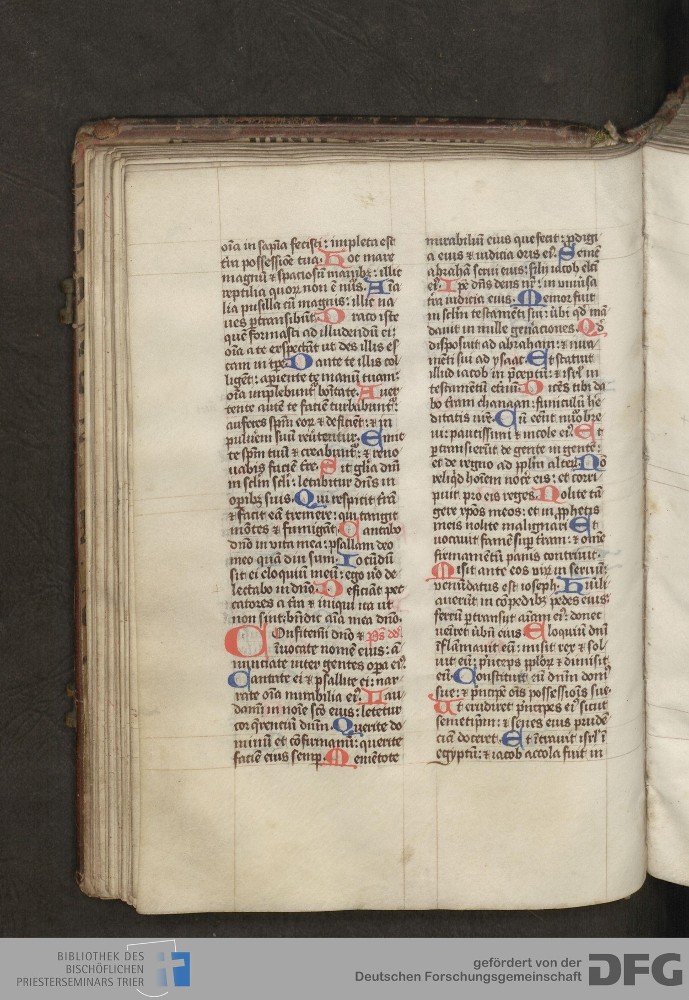 oīa in sapīa fecisti: impleta est
tr̄a possessiōe tua. Hoc mare
magnū ⁊ spaciosū manibꝫ: illic
reptilia quoꝝ non ē nūs. Aīa
lia pusilla cū magnis: illic na
ues ꝑtransibūt. Draco iste
quē formasti ad illudendū ei:
oīa a te exspectāt ut des illis es
cam in tꝑe. Dante te illis col
ligēt: apiente te manū tuam:
oīa implebunt᷑ boītate. Auer
tente autē te faciē turbabunt᷑:
auferes sp̄m eoꝝ ⁊ deficiēt: ⁊ in
puluerem suū reūtentur. Emit
te sp̄m tuū ⁊ creabunt᷑: ⁊ reno
uabis faciē tr̄e. Sit glīa dn̄i
in sclm̄ scl̄i: letabitur dn̄s in
oꝑibꝫ suis. Qui respicit tr̄ā
⁊ facit eā tremere: qui tangit
mōtes ⁊ fumigāt. Cantabo
dn̄o in vita mea: psallam deo
meo quā diu sum. Iocūdū
sit ei eloquiū meū: ego vo᷒ de
lectabo in dn̄o. Deficiāt pec
catores a tr̄a ⁊ iniqui ita ut
non sint: bn̄dic aīa mea dn̄o.
Confitemī dn̄o ⁊ ps̄ dd̄
īuocate nomē eius: ā
nunciate inter gentes oꝑa ei᷒.
Cantate ei ⁊ psallite ei: nar
rate oīa mirabilia ei᷒. Lau
damī in noīe sc̄o eius: letetur
cor q̄rentiū dn̄m. Querite do
minū et cōfirmamī: querite
faciē eius semꝑ. Memētote
mirabiliū eius que fecit: ꝓdigi
a eius ⁊ iudicia oris ei᷒. Semē
abrahā serui eius: filij iacob elc̄i
ei᷒. Ipe dn̄s deus nr̄: in vniūsa
tr̄a iudicia eius. Memor fuit
in sclm̄ testamēti sui: ūbi qd̄ mā
dauit in mille gen̄aciones. Qd̄
disposuit ad abraham: ⁊ iura
mēti sui ad ysaac. Et statuit
illud iacob in p̄ceptū: ⁊ isrl̄ in
testamētū et̄nū. Dicēs tibi da
bo tr̄am chanaan: funiculū he
ditatis vr̄e. Cū eēnt nūo bre
ui: paucissimi ⁊ incole ei᷒. Et
ꝑtransierūt de gente in gentē:
et de regno ad pplm̄ alteꝝ. Nō
reliqͥd hoīem nocē eis: et corri
puit pro eis reges. Nolite tā
gere xp̄os meos: et in ꝓphetis
meis nolite malignari. Et
uocauit famē suꝑ tr̄am: ⁊ om̄e
firmamētū panis contriuit.
Misit ante eos virū: in seruū
venūdatus est ioseph. Hūili
auerūt in cōpedibꝫ pedes eius:
ferrū ꝑtransijt aīam ei᷒: donec
ueīret ūbū eius. Eloquiū dn̄i
īflamauit eū: misit rex ⁊ sol
uit eū: p̄nceps pploꝝ ⁊ dimisit
eū. Constituit eū dn̄m dom᷒
sue: ⁊ p̄ncipē oīs possessiōis sue.
Ut erudiret p̄ncipes ei᷒ sicut
semetip̄m: ⁊ senes eius prudē
ciā doceret. Et ītrauit isrl̄ ī
egyptū: ⁊ iacob accola fuit in
BIBLIOTHEK DES
BISCHÖFLICHEN
PRIESTERSEMINARS TRIER
gefördert von der
Deutschen Forschungsgemeinschaft
DFG